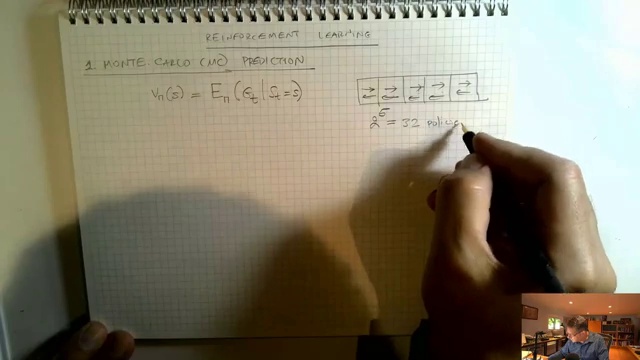 REINFORCEMENT LEARNING
1. MONTE CARLO (MC) PREDICTION
Vπ(s) = Eπ(Gt | St = s)
2^5 = 32 policie